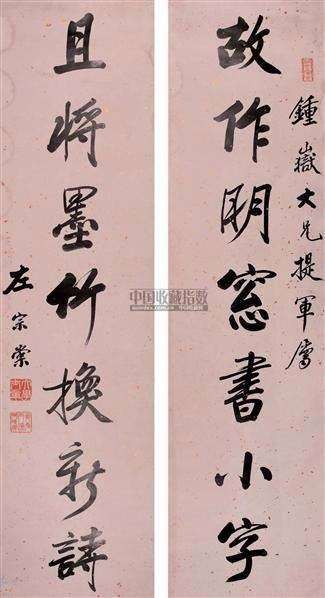 鍾嶽大兄提軍屬
故作明窓書小字
且將墨竹換新詩
左宗棠
中国收藏指数